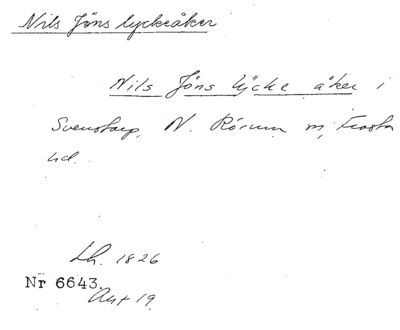 Nils Jöns lyckeåker
Nils Jöns lycke åker i
Svenstorp, N. Rörum m, Frosta
hd.
Lh. 1826
Nr 6643.
Akt 19